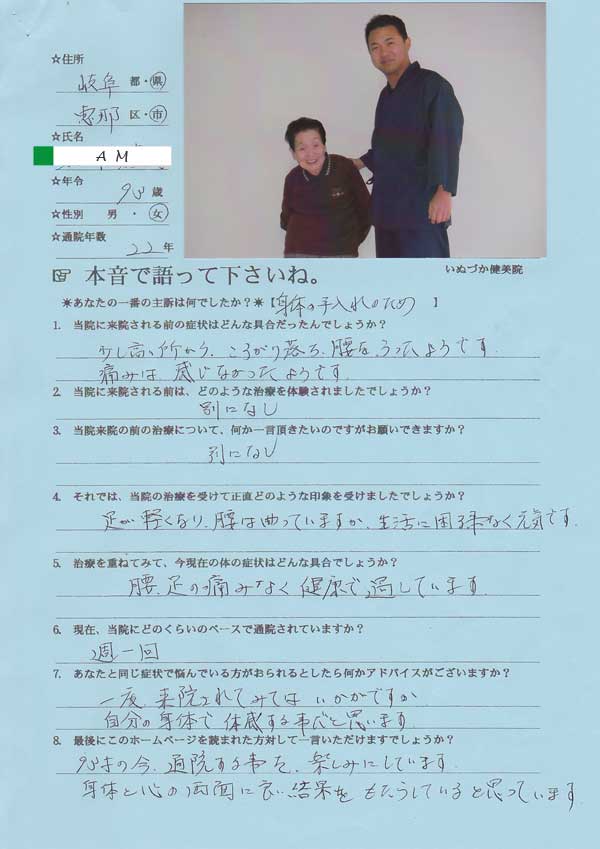 ☆住所
岐阜 都・県
恵那 区・市
☆氏名
A M
☆年令
歳
☆性別 男・女
☆通院年数
22年
いぬづか健美院
☞ 本音で語って下さいね。
＊あなたの一番の主訴は何でしたか？＊【身体の手入れのため】
1. 当院に来院される前の症状はどんな具合だったんでしょうか？
少し高い所から、ころがり落ち、腰を、うったようです。
痛みは、感じなかったようです。
2. 当院に来院される前は、どのような治療を体験されましたでしょうか？
別になし
3. 当院来院の前の治療について、何か一言頂きたいのですがお願いできますか？
別になし
4. それでは、当院の治療を受けて正直どのような印象を受けましたでしょうか？
足が軽くなり、腰は曲っていますが、生活に困る事なく元気です。
5. 治療を重ねてみて、今現在の体の症状はどんな具合でしょうか？
腰、足の痛みなく健康で過しています。
6. 現在、当院にどのくらいのペースで通院されていますか？
週一回
7. あなたと同じ症状で悩んでいる方がおられるとしたら何かアドバイスがございますか？
一度、来院されてみてはいかがですか
自分の身体で体感する事だと思います。
8. 最後にこのホームページを読まれた方対して一言いただけますでしょうか？
才の今、通院する事を、楽しみにしています。
身体と心の両面に良い結果をもたらしていると思っています。